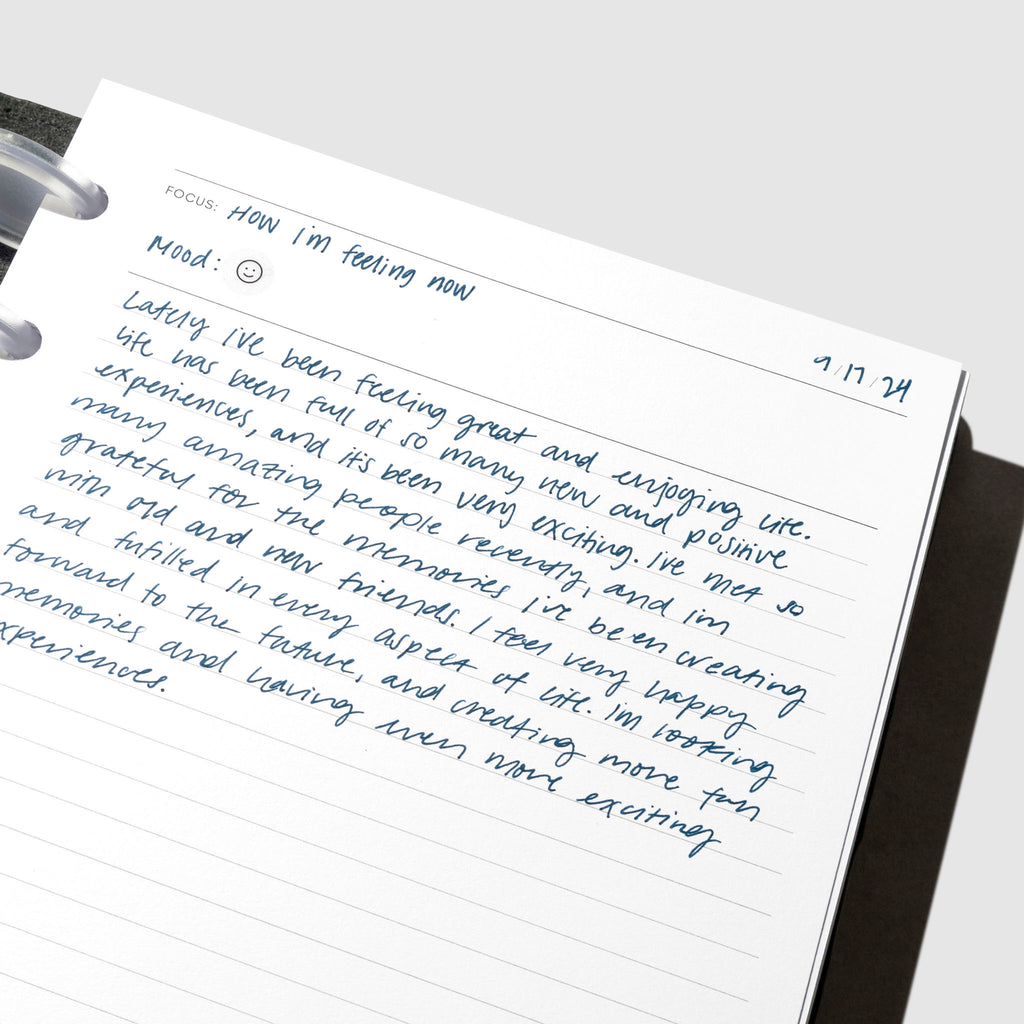 FOCUS: How i'm feeling now
Mood:
9/17/24
Lately i've been feeling great and enjoying life.
life has been full of so many new and positive
experiences, and it's been very exciting. I've met so
many amazing people recently, and i'm
grateful for the memories i've been creating
with old and new friends. I feel very happy
and fufilled in every aspect of life. im looking
forward to the future, and creating more fun
memories and having even more exciting
xperiences.